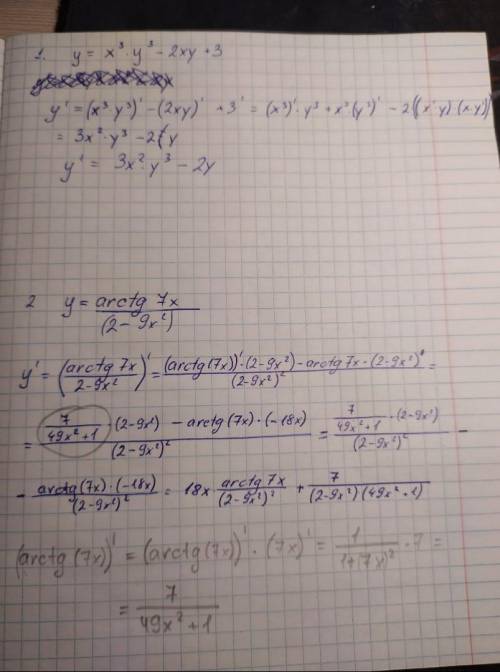 1. y = x³·y³ - 2xy + 3
y' = (x³·y³)' - (2xy)' + 3' = (x³)'·y³ + x³·(y³)' - 2((x'·y)·(x·y'))
= 3x²·y³ - 2y
y' = 3x²·y³ - 2y
2 y = arctg 7x / (2-9x²)
y' = (arctg 7x / 2-9x²)' = (arctg(7x))'·(2-9x²) - arctg 7x·(2-9x²)' / (2-9x²)² =
= 7/(49x²+1)·(2-9x²) - arctg(7x)·(-18x) / (2-9x²)² = 7/(49x²+1)·(2-9x²) / (2-9x²)² -
- arctg(7x)·(-18x) / (2-9x²)² = 18x·arctg 7x / (2-9x²)² + 7 / (2-9x²)(49x²+1)
(arctg(7x))' = (arctg(7x))'·(7x)' = 1 / 1+(7x)² · 7 =
= 7 / 49x²+1